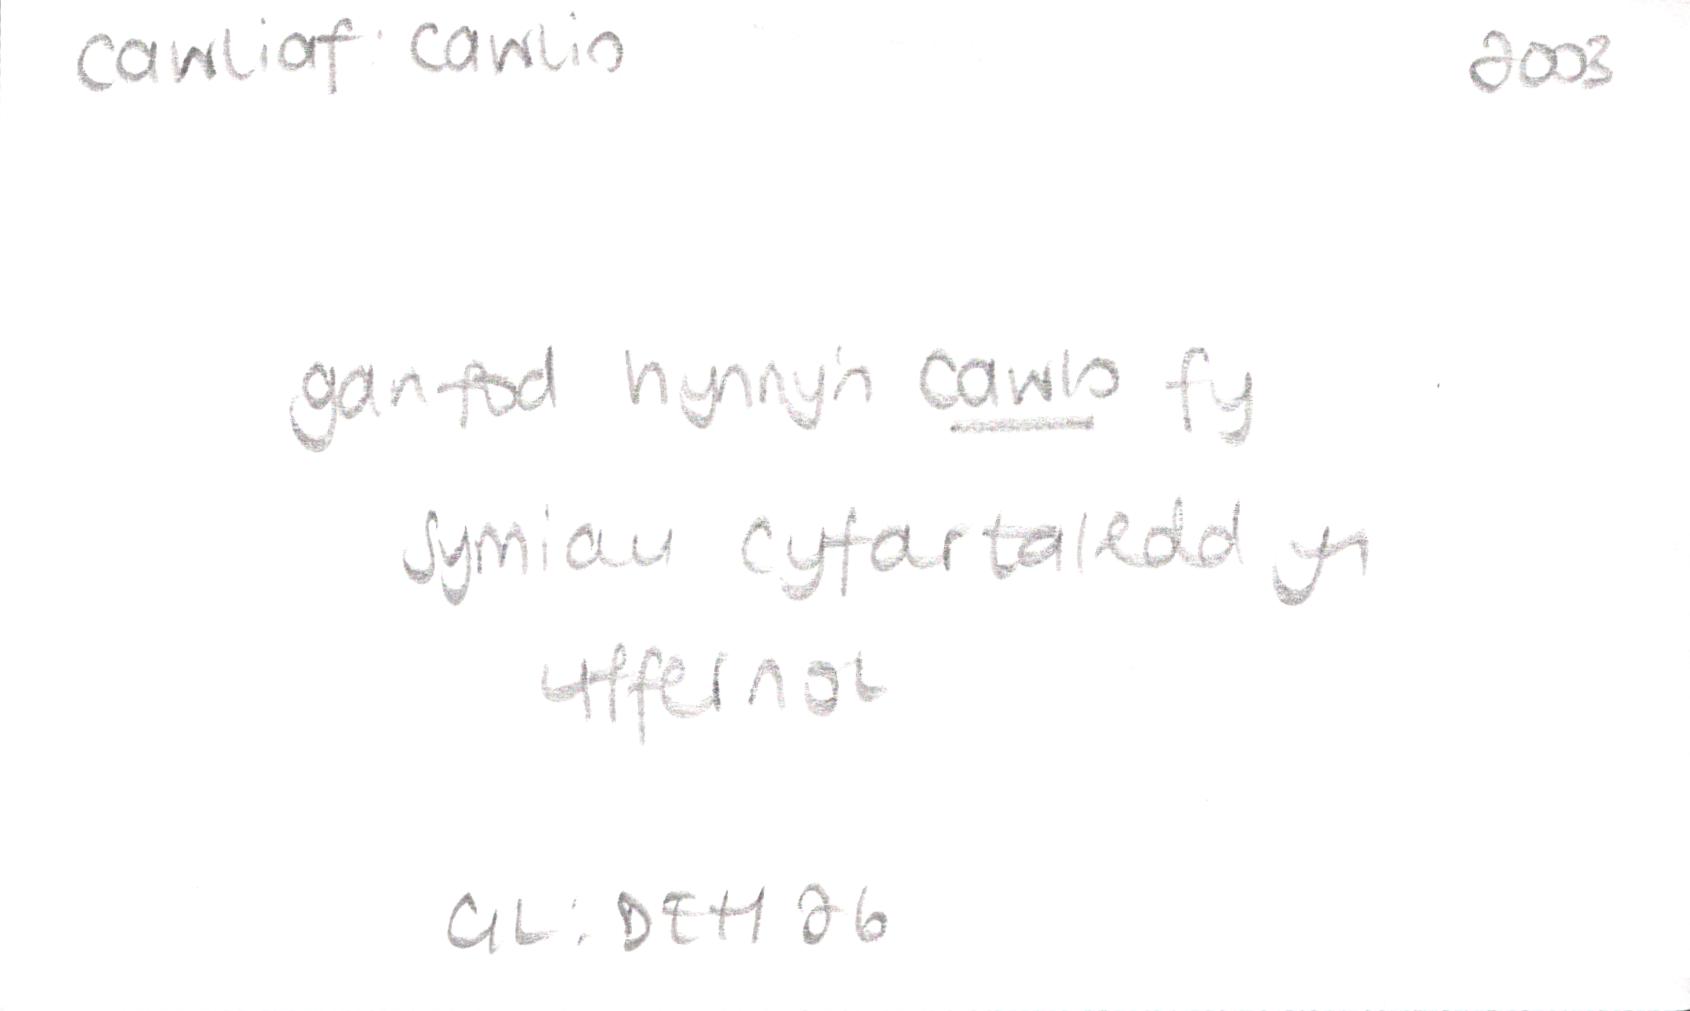 cawliaf: cawlio 2003
gan fod hynny'n cawlio fy
symiau cyfartaledd yn
uffernol
GL: DEH 26